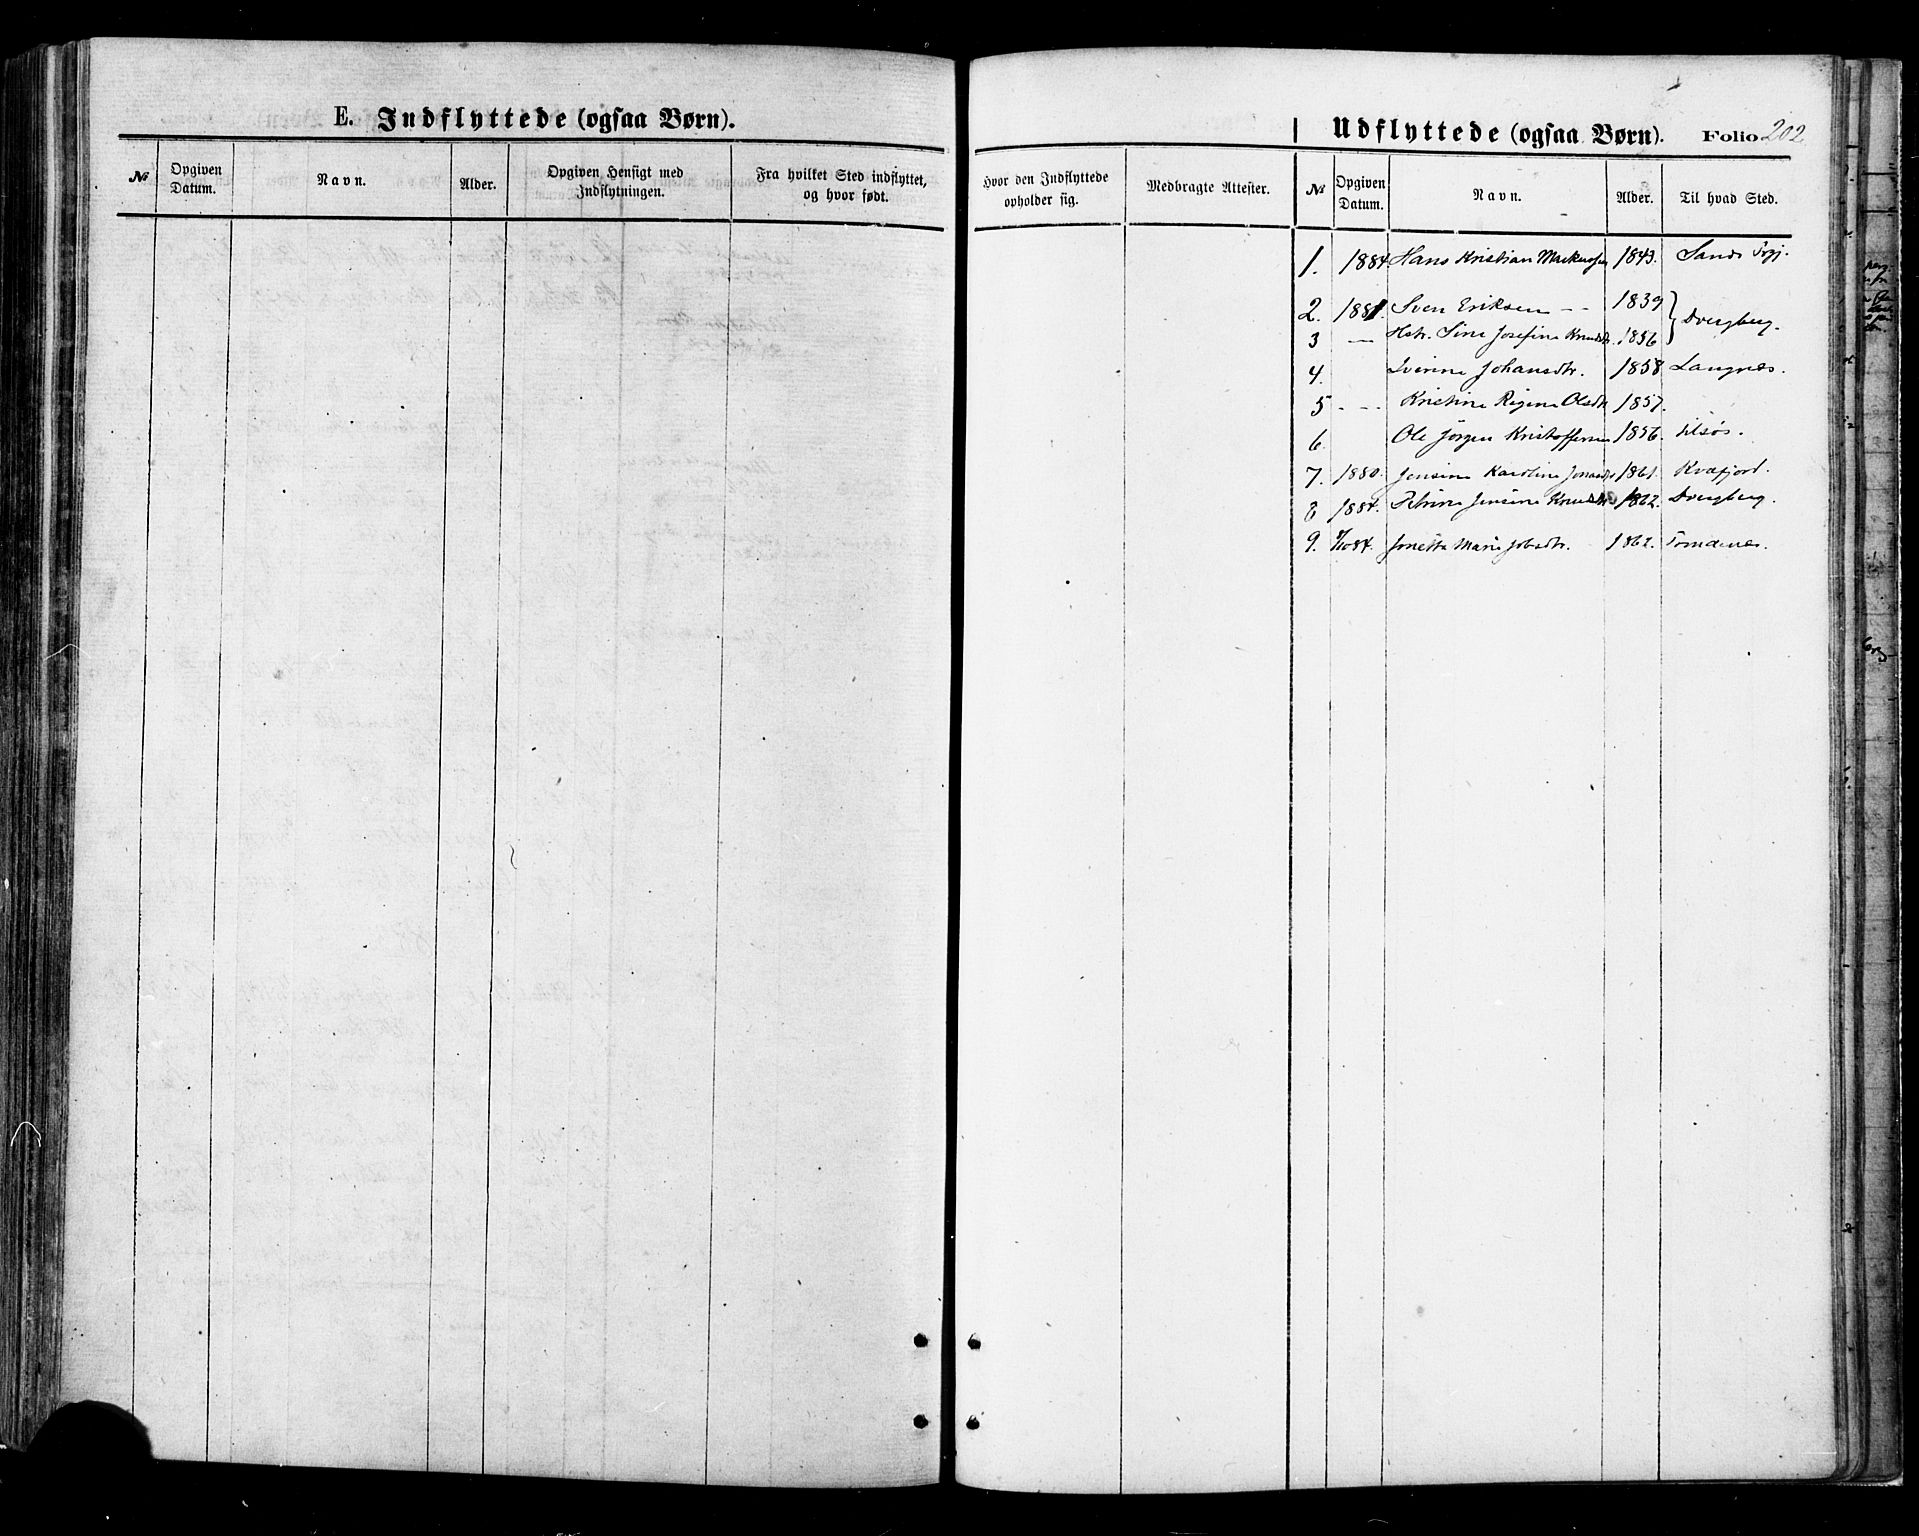 E. Indflyttede (ogsaa Børn).
№ Opgiven Datum. Navn. Alder. Opgiven Hensigt med Indflytningen. Fra hvilket Sted indflyttet, og hvor født.
Udflyttede (ogsaa Børn). Folio 202
Hvor den Indflyttede opholder sig. Medbragte Attester. № Opgiven Datum. Navn. Alder. Til hvad Sted.
1. 1884. Hans Kristian Markussen 1843. Sands Prgj.
2. 1881. Sven Eriksen -- 1839
3 — Hstr. Sine Josefine Knudsdtr. 1856 } Dvergberg.
4. Iverine Johansdtr. 1858 Langnes.
5 - -- Kristine Regine Olsdtr 1857.
6 Ole Jörgen Kristoffersen 1856.
7. 1880. Jensine Karoline Jonasdtr 1861. Kvæfjord.
8 1884. Petrine Jensine Knudsdtr 1862. Dvergberg.
9. 84. Jonetta Marie Jobsdtr. 1862.